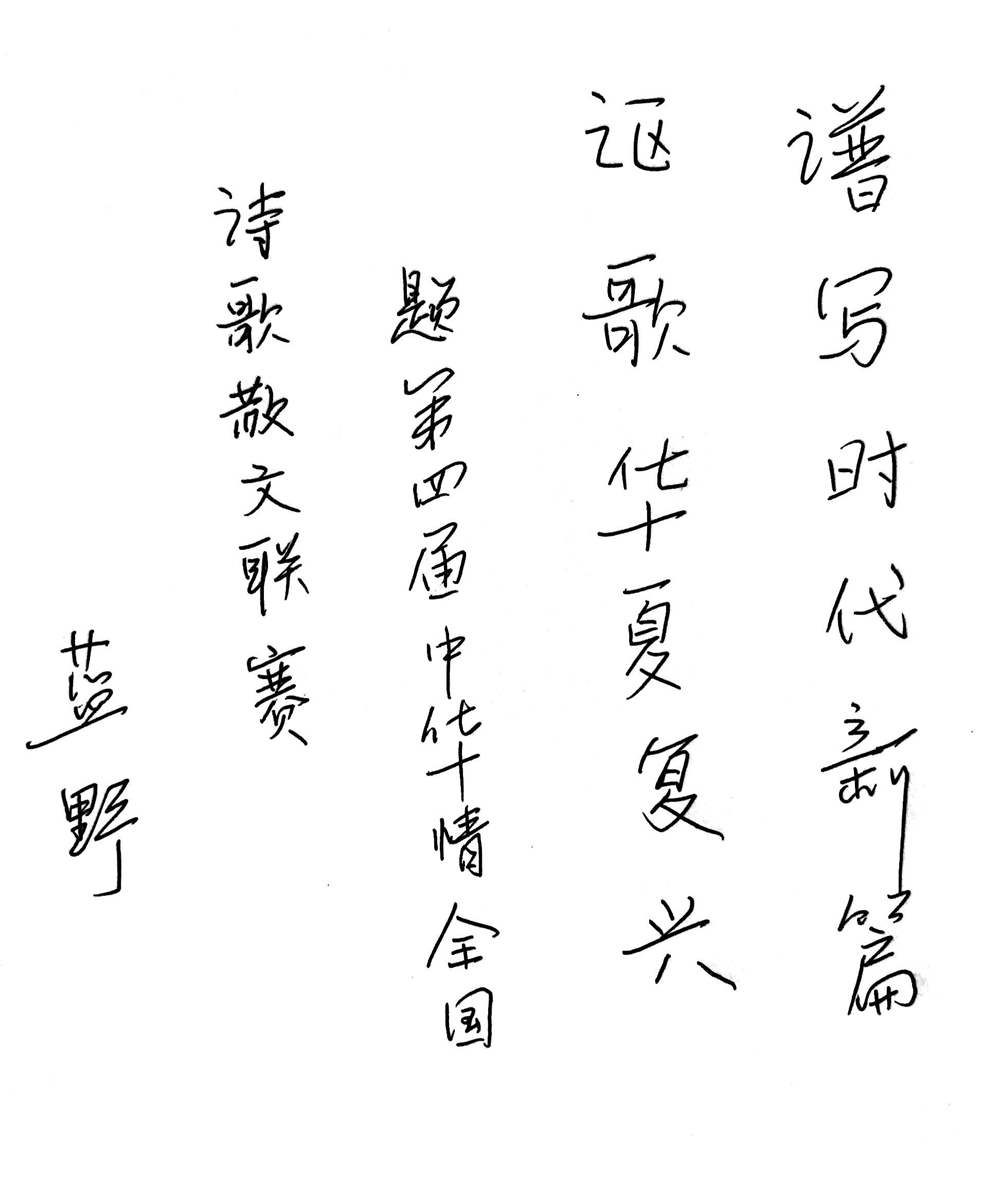 谱写时代新篇
讴歌华夏复兴
题第四届中华情全国
诗歌散文联赛
蓝野